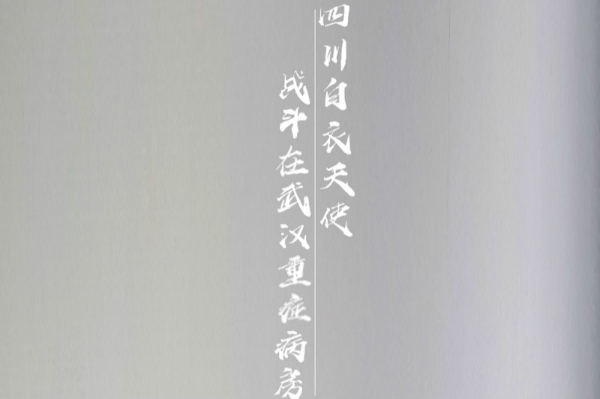 四川白衣天使
战斗在武汉重症病房